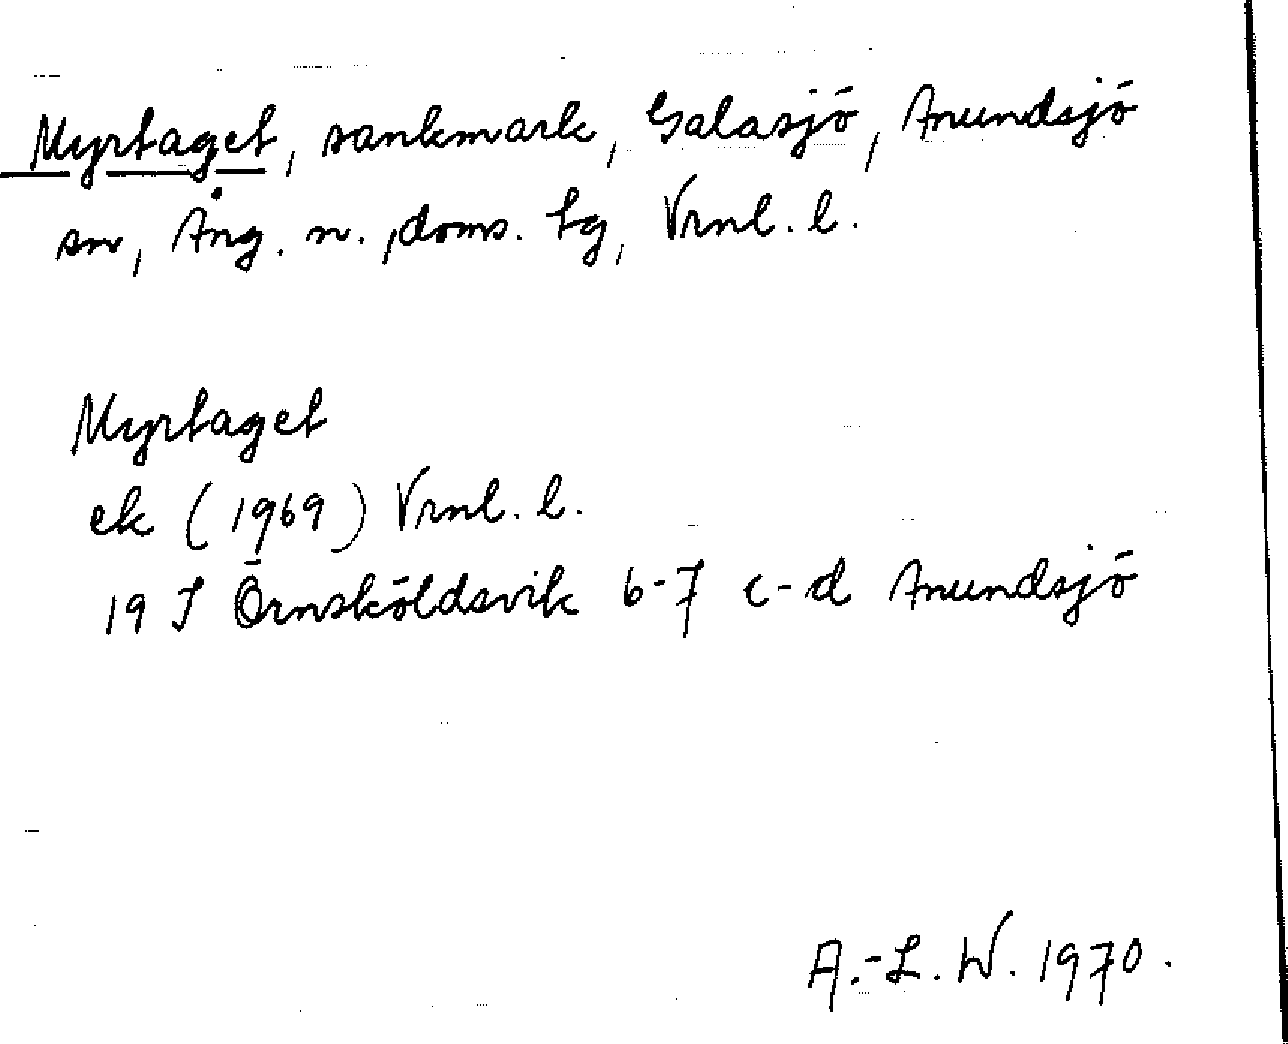 Myrtaget, sankmark, Galasjö, Anundsjö
sn, Ång. n., doms. tg, Vrnl. l.
Myrtaget
ek (1969) Vrnl. l.
19 J Örnsköldsvik 6-7 c-d Anundsjö
A.-L. W. 1970.